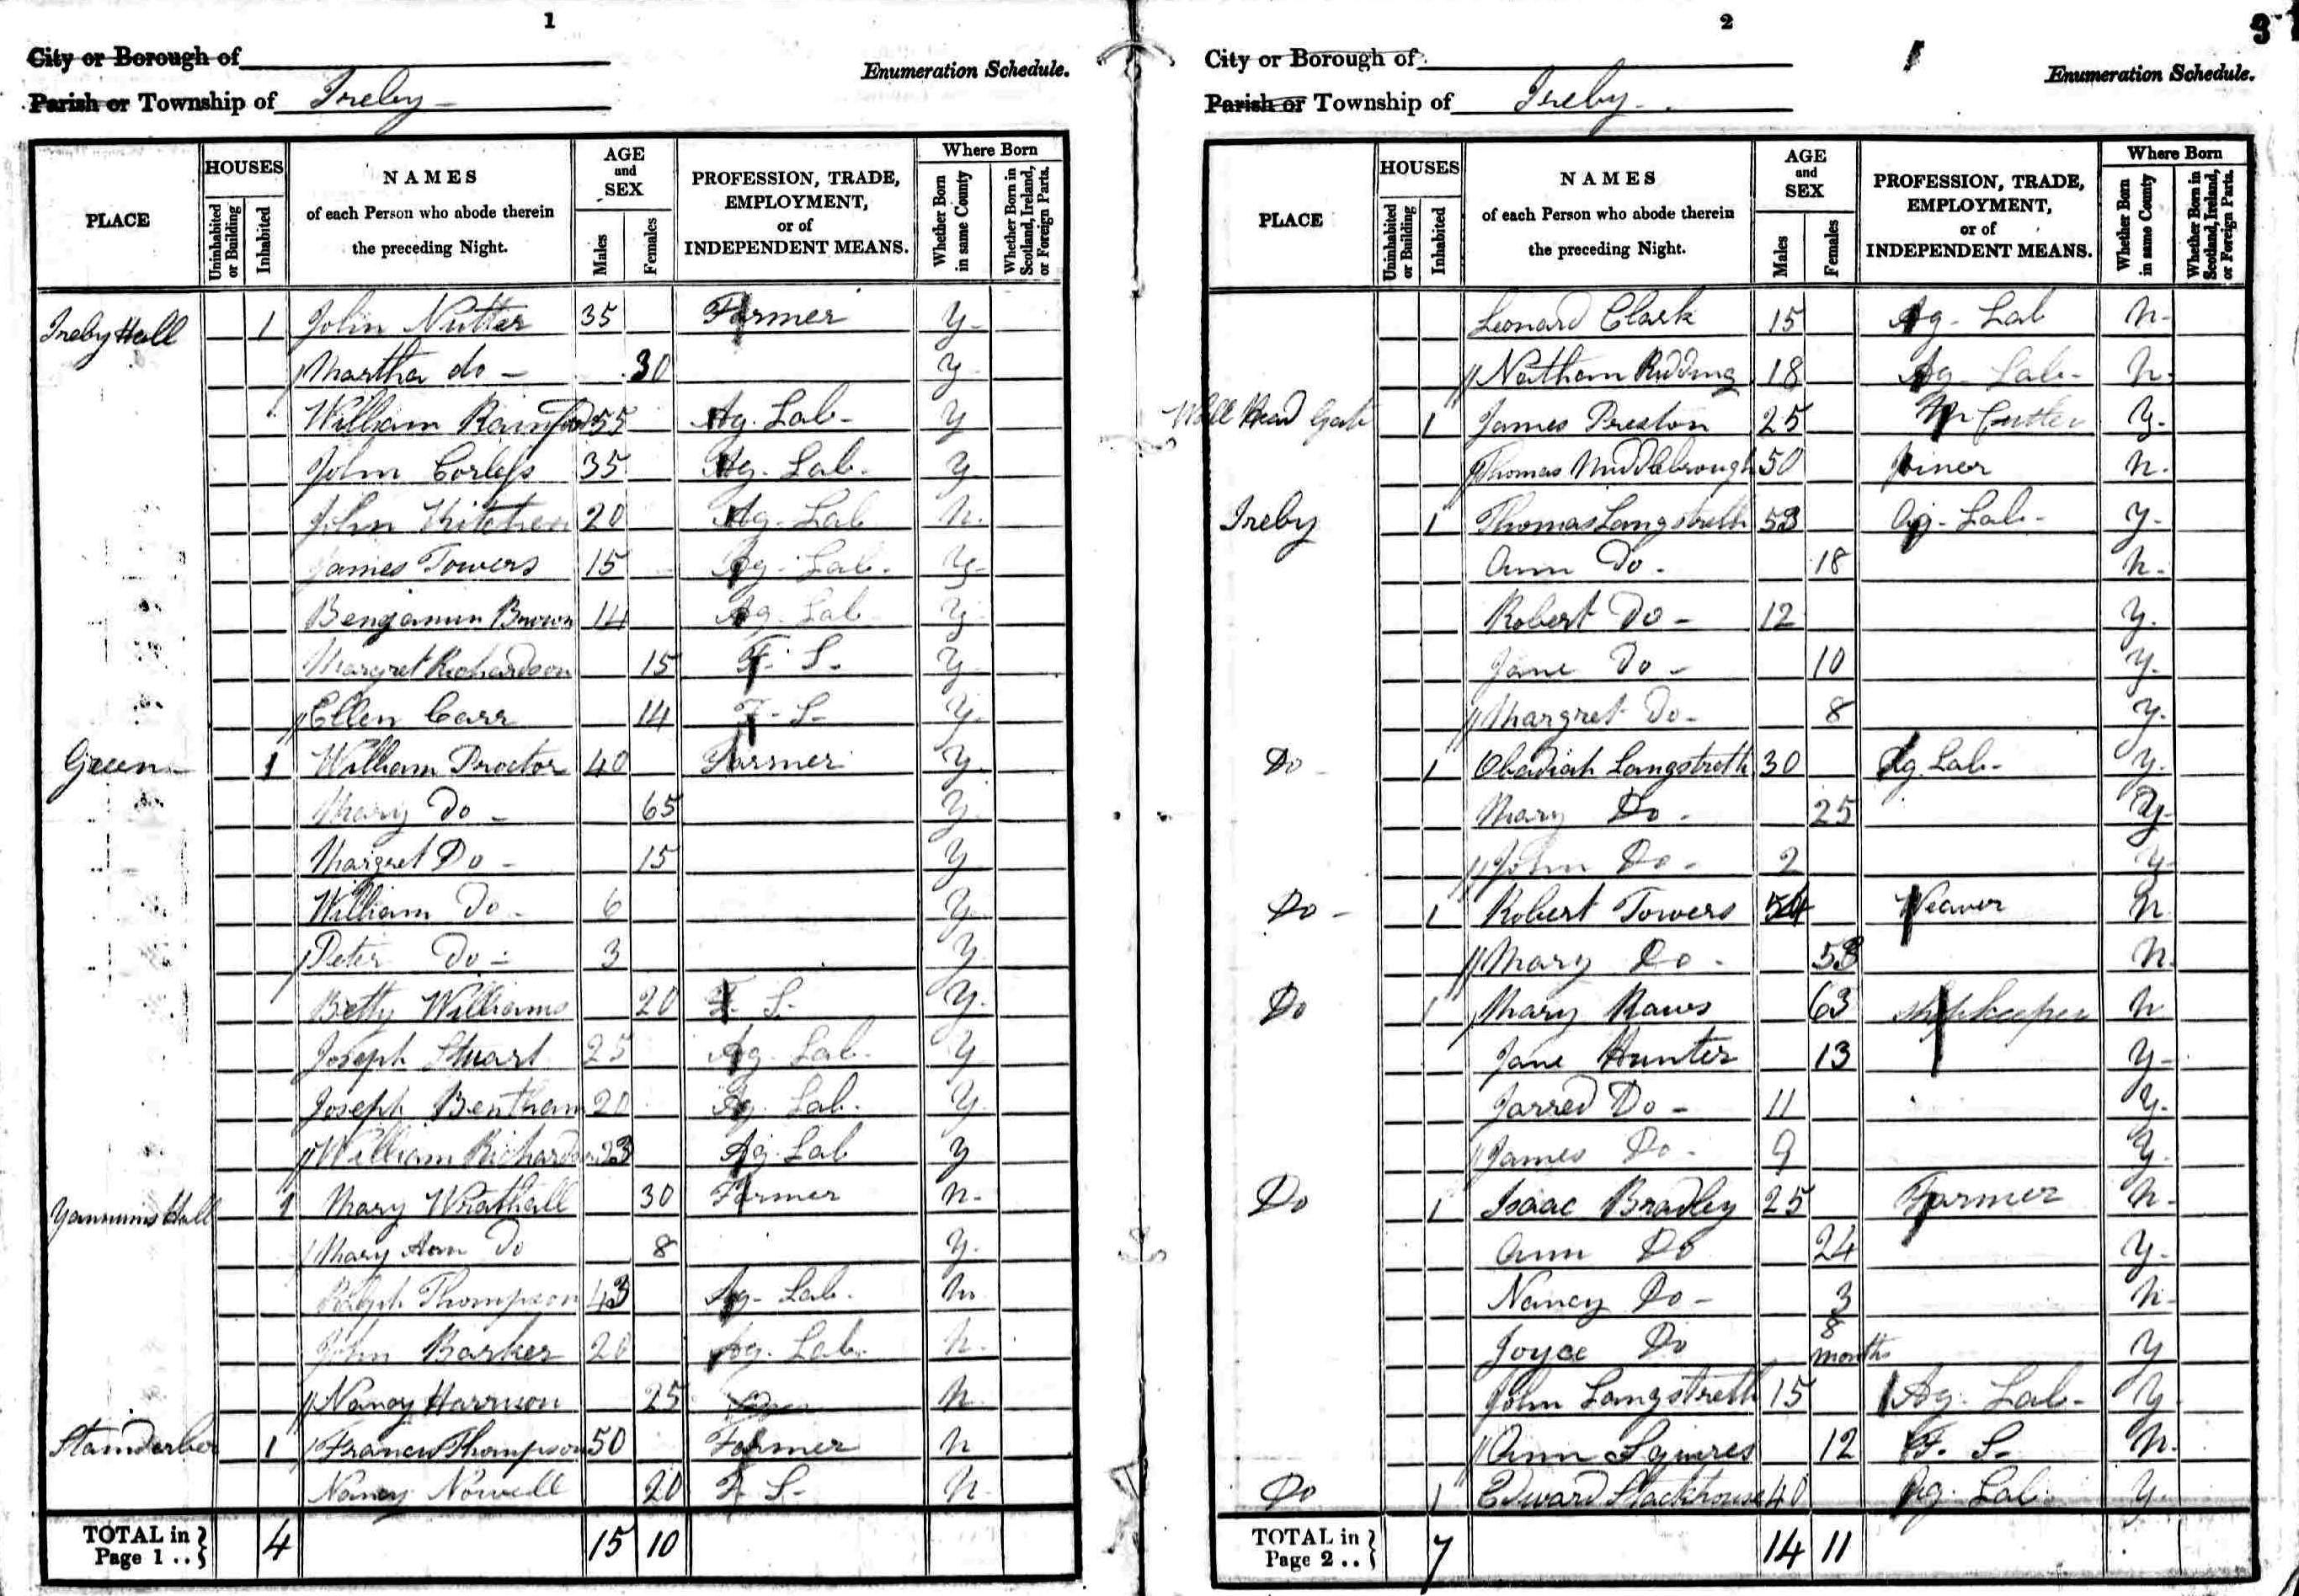 1
City or Borough of
Parish or Township of Ireby
Enumeration Schedule.
PLACE
HOUSES
Uninhabited or Building
Inhabited
NAMES
of each Person who abode therein
the preceding Night.
AGE
and
SEX
Males
Females
PROFESSION, TRADE,
EMPLOYMENT,
or of
INDEPENDENT MEANS.
Where Born
Whether Born in same County
Whether Born in Scotland, Ireland, or Foreign Parts.
Ireby Hall 1 John Nutter 35 Farmer y
Martha do 30 y
William 55 Ag. Lab y
John Corless 35 Ag. Lab. y
John Kitchen 20 Ag. Lab n
James Towers 15 Ag. Lab. y
Benjamin Brown 14 Ag. Lab y
Margret Richardson 15 F. S. y
Ellen Carr 14 F. S. y
Green 1 William Proctor 40 Farmer y
Mary Do 65 y
Margret Do 15 y
William Do 6 y
Peter Do 3 y
Betty Williams 20 F. S. y
Joseph Stuart 25 Ag. Lab. y
Joseph Bentham 20 Ag. Lab. y
William Richardson 23 Ag. Lab y
Hall 1 Mary Wrathall 30 Farmer n
Mary Ann Do 8 y
Ralph Thompson 43 Ag. Lab. n
John Barker 20 Ag. Lab. n
Nancy Harrison 25 n
1 Francis Thompson 50 Farmer n
Nancy Nowell 20 F. S. n
TOTAL in Page 1 .. 4 15 10
2
3
City or Borough of
Parish or Township of Ireby
Enumeration Schedule.
PLACE
HOUSES
Uninhabited or Building
Inhabited
NAMES
of each Person who abode therein
the preceding Night.
AGE
and
SEX
Males
Females
PROFESSION, TRADE,
EMPLOYMENT,
or of
INDEPENDENT MEANS.
Where Born
Whether Born in same County
Whether Born in Scotland, Ireland, or Foreign Parts.
Leonard Clark 15 Ag. Lab n
Nathan Ridding 18 Ag. Lab. n
Head Gate 1 James Preston 25 Cutter y
Thomas Middlebrough 50 Joiner n
Ireby 1 Thomas Langstreth 53 Ag. Lab. y
Ann Do 18 n
Robert Do 12 y
Jane Do 10 y
Margret Do 8 y
Do 1 Obadiah Langstreth 30 Ag. Lab. y
Mary Do 25 y
John Do 2 y
Do 1 Robert Towers 54 Weaver n
Mary Do 53 n
Do 1 Mary Raws 63 Shopkeeper n
Jane Hunter 13 y
Jarred Do 11 y
James Do 9 y
Do 1 Isaac Bradley 25 Farmer n
Ann Do 24 y
Nancy Do 3 n
Joyce Do 8 months y
John Langstreth 15 Ag. Lab. y
Ann Squires 12 F. S. n
Do 1 Edward Stackhouse 40 Ag. Lab. y
TOTAL in Page 2 .. 7 14 11